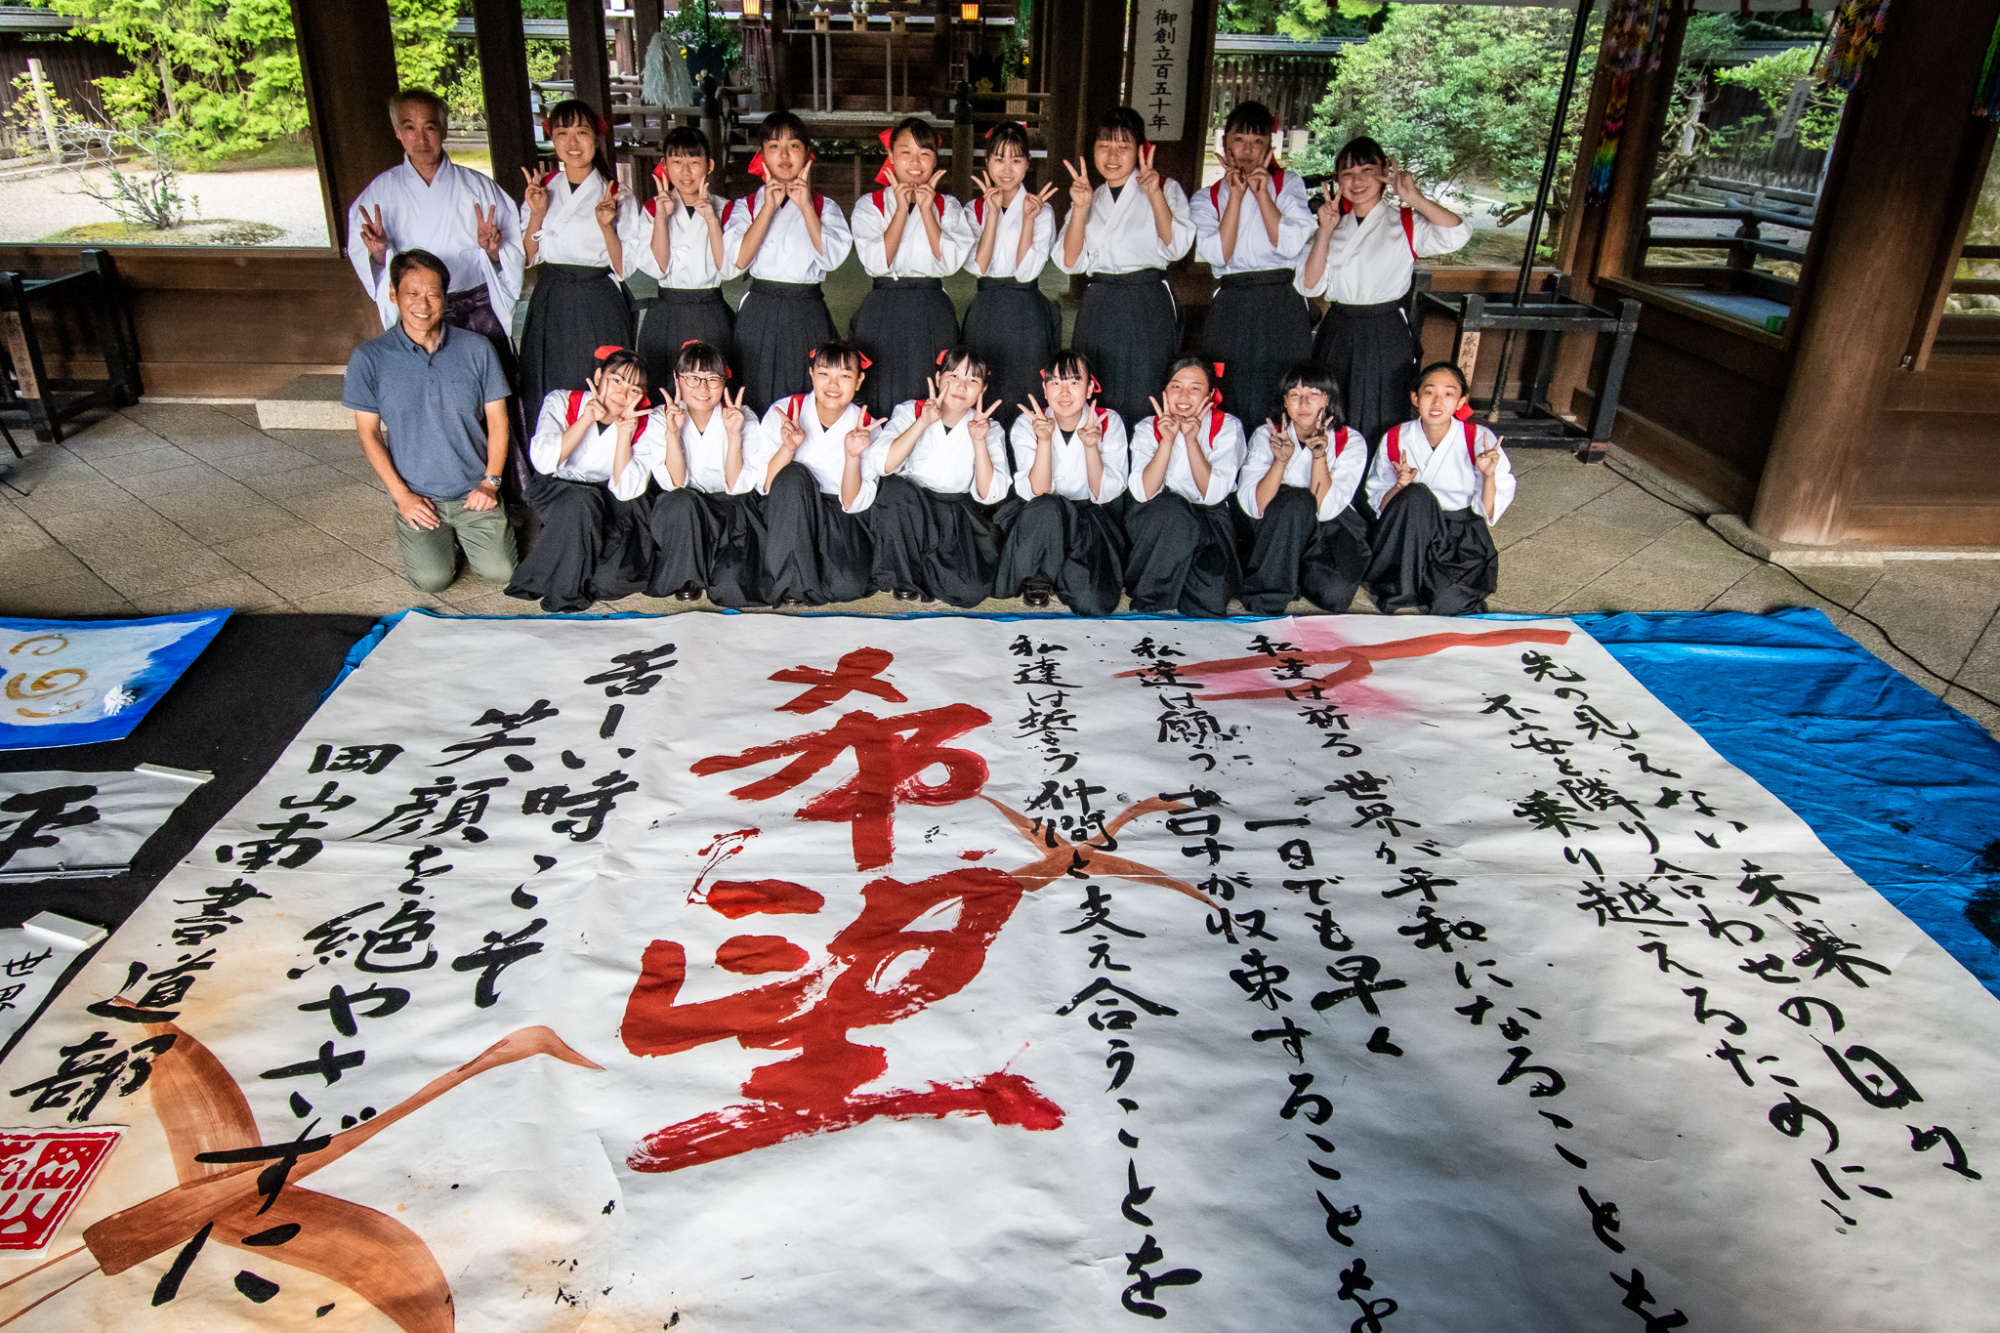 御創立百五十年
先の見えない未来の日々
不安と隣り合わせ
乗り越えるために
私達は祈る 世界が平和になることを
一日でも早く
私達は願う コロナが収束することを
私達は誓う 仲間と支え合うことを
希望
苦しい時こそ
笑顔を絶やさずに
岡山南書道部
平
世界